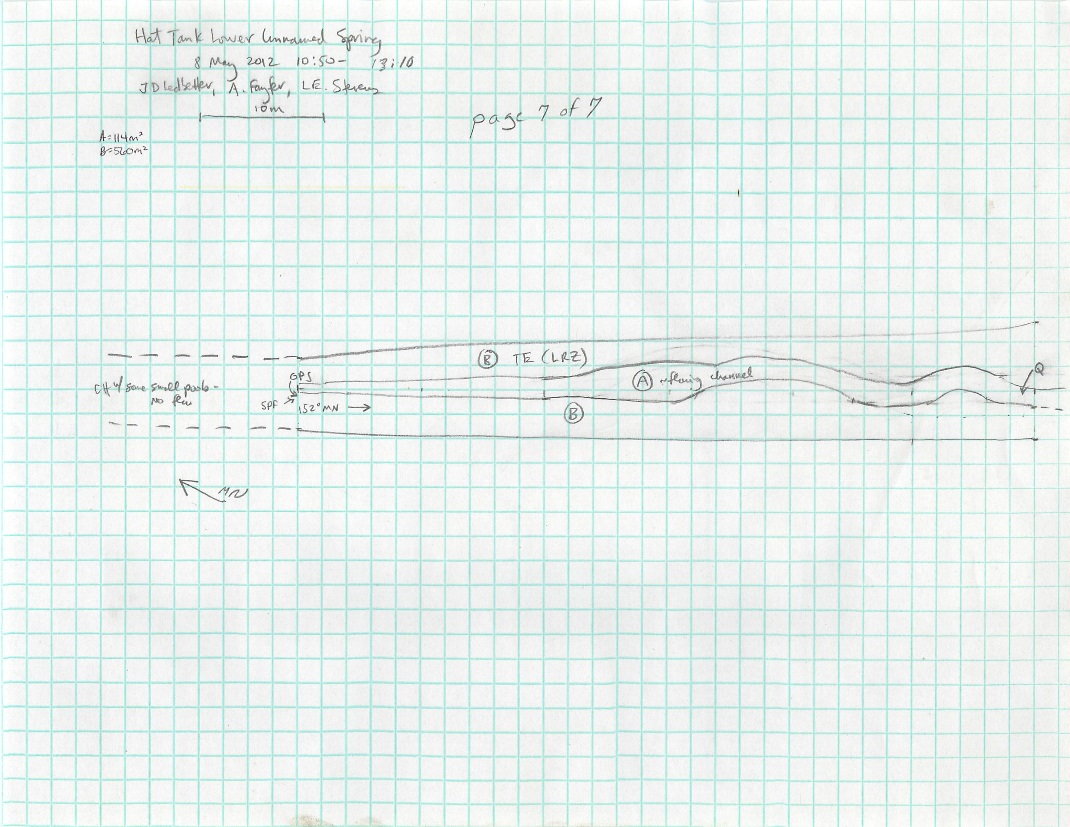 Hat Tank Lower Unnamed Spring
8 May 2012 10:50- 13:10
JD Ledbetter, A. Fayfer, LE. Stevens
10m
page 7 of 7
A=114m²
B=560m²
B TE (LRZ)
GPS
A flowing channel
Q
CH w/ some small pools -
No flow
SPF
152° MN
B
MN